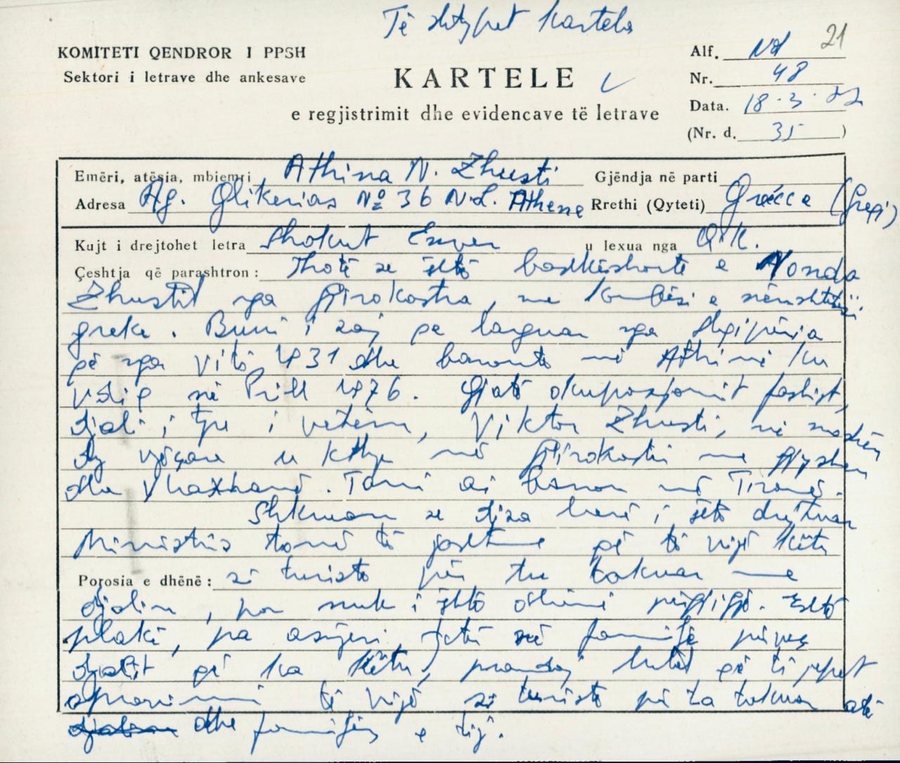 Të shtypet kartela
KOMITETI QENDROR I PPSH
Sektori i letrave dhe ankesave
KARTELE
e regjistrimit dhe evidencave të letrave
Alf. 21
Nr. 48
Data. 18.3.82
(Nr. d. 35)
Emëri, atësia, mbiemri Athina N. Zhusti Gjëndja në parti
Adresa Ag. Glikerias No 36 N.L. Athene Rrethi (Qyteti) Grécce (Greqi)
Kujt i drejtohet letra Shokut Enver u lexua nga
Çeshtja që parashtron: Thotë se është bashkëshorte e Nonda
Zhustit nga Gjirokastra, me kombësi e nënshtetësi
greke. Burri i saj pe larguar nga Shqipëria
që nga viti 1931 dhe banonte në Athinë ku
vdiq në Prill 1976. Gjatë okupacionit fashist,
djali i tyre i vetëm, Viktor Zhusti, në moshën
vjeçare u kthye në Gjirokastër me gjyshen
dhe xhaxhanë. Tani ai banon në Tiranë.
Shkruan se disa herë i është drejtuar
Ministris tonë të jashtme që të vijë këtu
Porosia e dhënë: si turiste për tu takuar me
djalin, por nuk i është dhënë përgjigje. Është
plakë, pa asnjeri tjetër në familje përveç
djalit që ka këtu, prandaj lutet që ti jepet
aprovimi të vijë si turiste për ta takuar atë
djalin dhe familjen e tij.